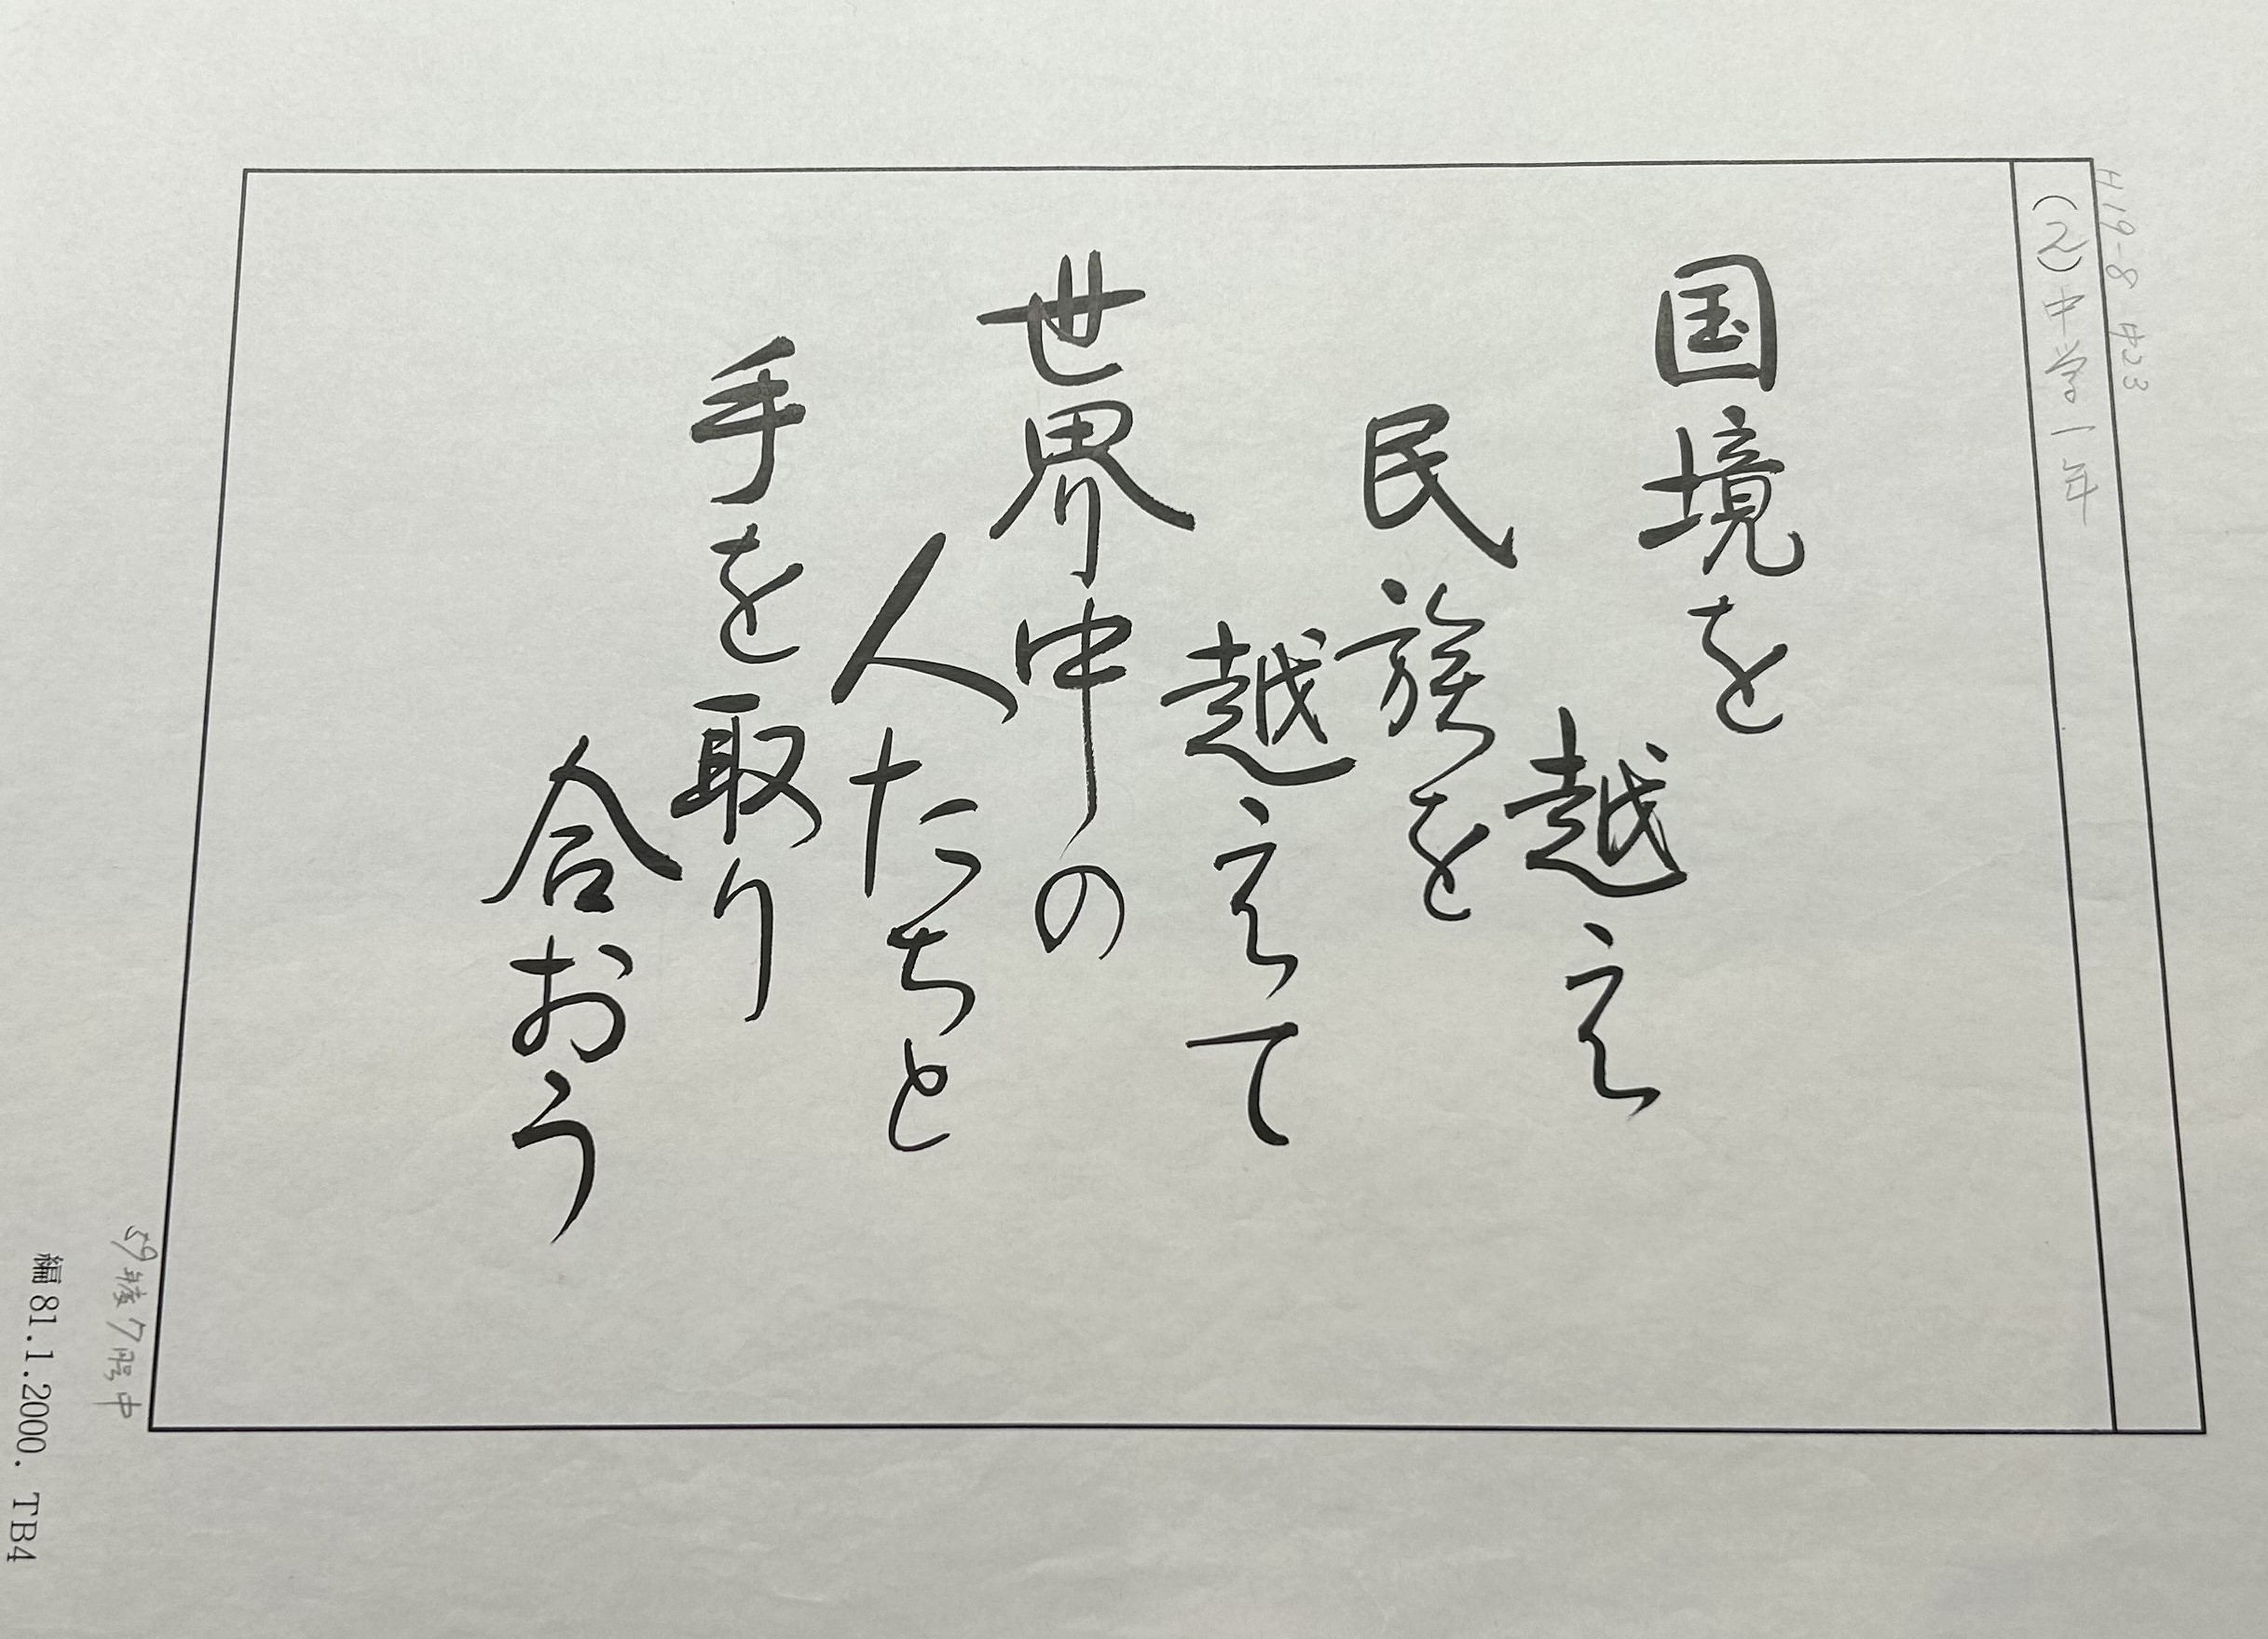 H19-8 中23
(2)中学1年
国境を
越え
民族を
越えて
世界中の
人たちと
手を取り
合おう
59 7号中
編 81.1.2000. TB4